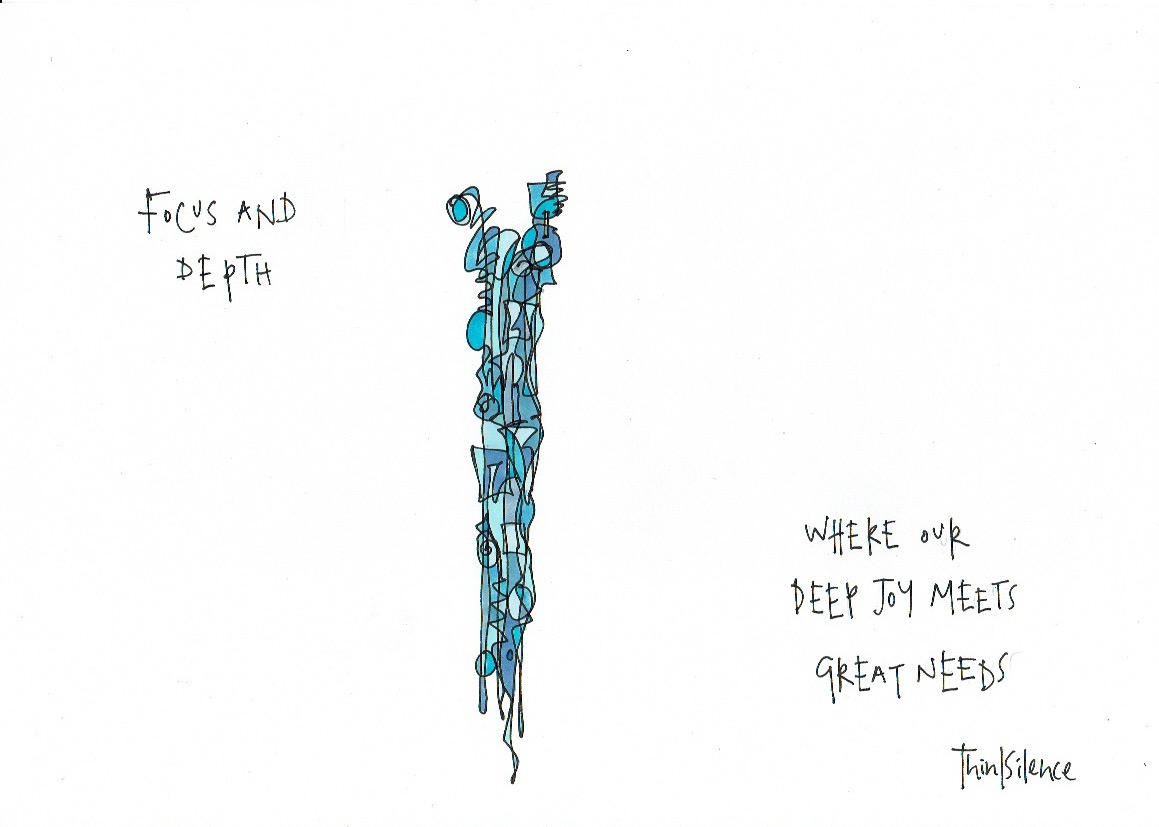 FOCUS AND
DEPTH
WHERE OUR
DEEP JOY MEETS
GREAT NEEDS
Thin|Silence